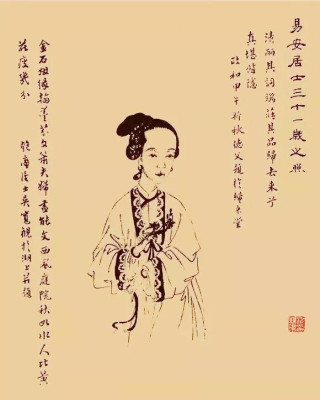 易安居士三十一歲之照
清麗其詞端莊其品歸去來兮
真堪偕隱
政和甲午新秋德父題於歸來堂
金石姻緣翰墨芬文簫夫婦盡能文西風庭院秋如水人比黃
花瘦幾分
居士吳寬觀於湖上